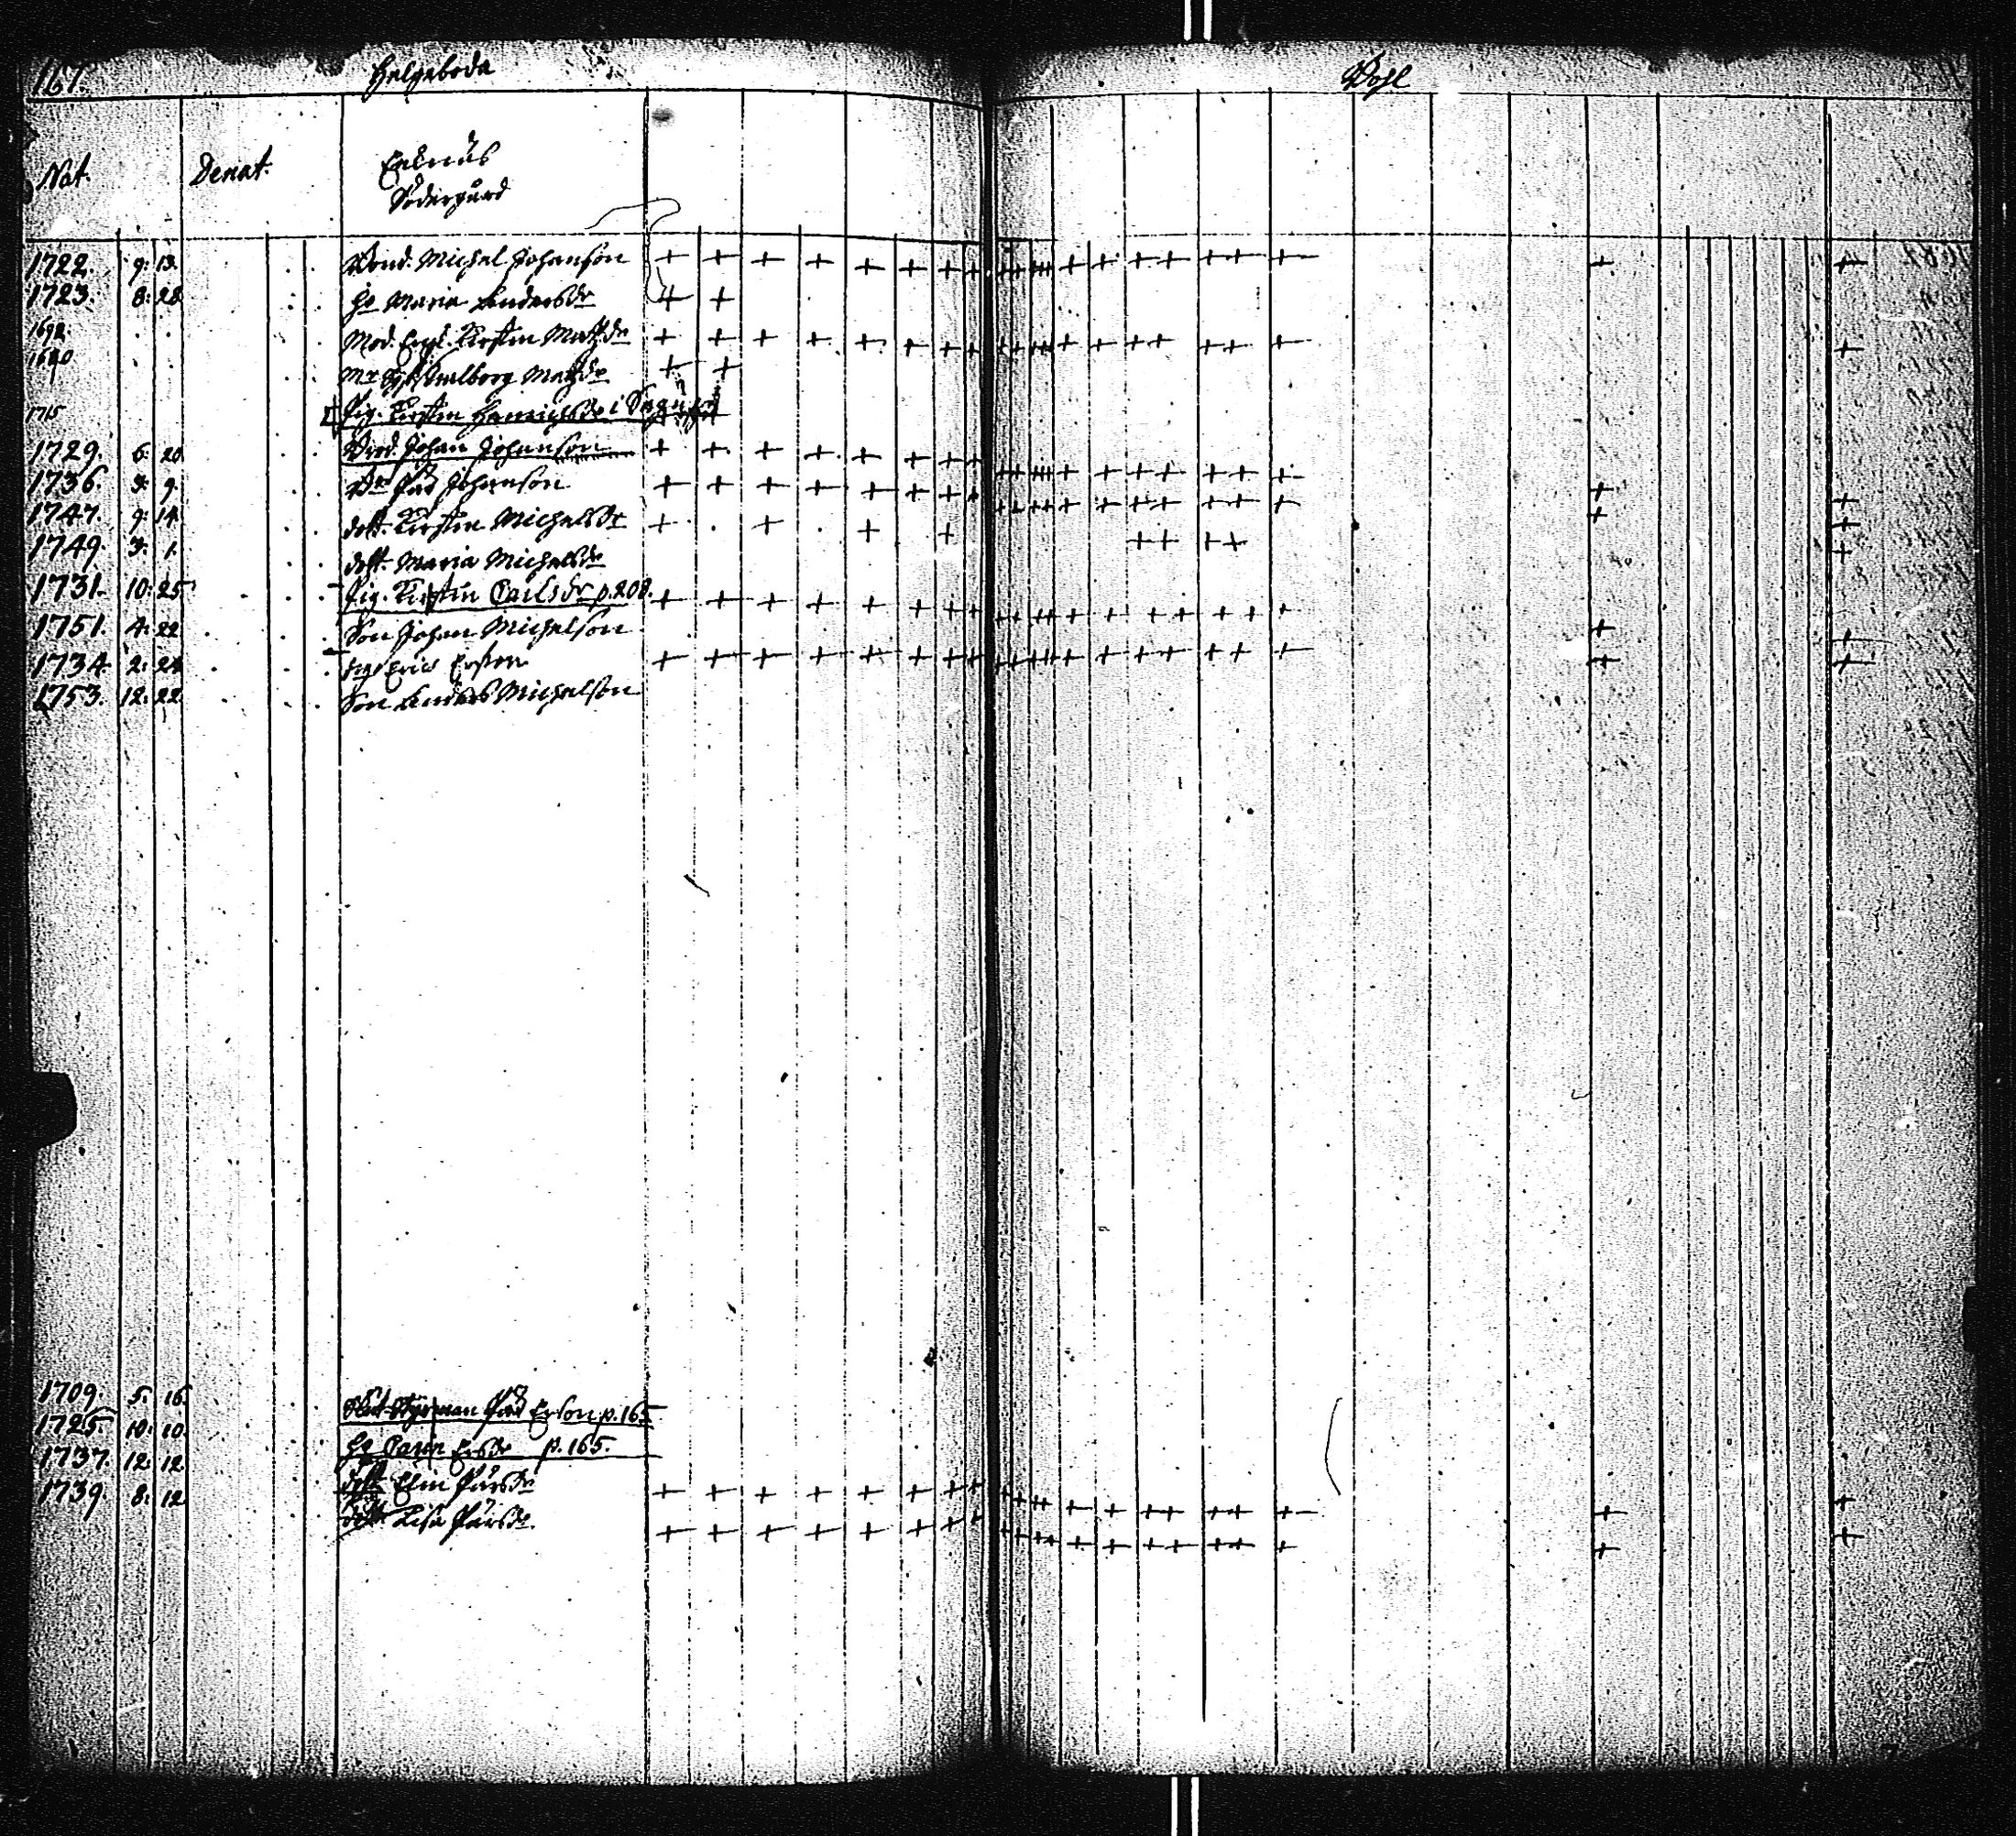 167. Helgeboda Wohl
Nat. Denat.
Södergård
1722. 9: 13. Bond. Michel Johanson
1723. 8: 28. H. Maria Andersdr
1692. Mod. Kirstin Matsdr
1690 Walborg Matsdr
1715 Pig. Kirstin Henrichsdr i
1729. 6: 20. Brod. Johan Johanson
1736. 3: 9. Br Påhl Johanson
1747. 9: 14. dott. Kirstin Michelsdr
1749. 3: 1. dott. Maria Michelsdr
1731. 10: 25 Pig. Kirstin Carlsdr p. 208.
1751. 4: 22. Son Johan Michelson
1734. 2: 24 Eric Erson
1753. 12: 22. Son Anders Michelson
1709. 5. 16. Styrman Erson p. 165
1725. 10: 10. H. Carin Ersdr p. 165.
1737. 12: 12. dott. Elin
1739. 8: 12. dott. Lisa